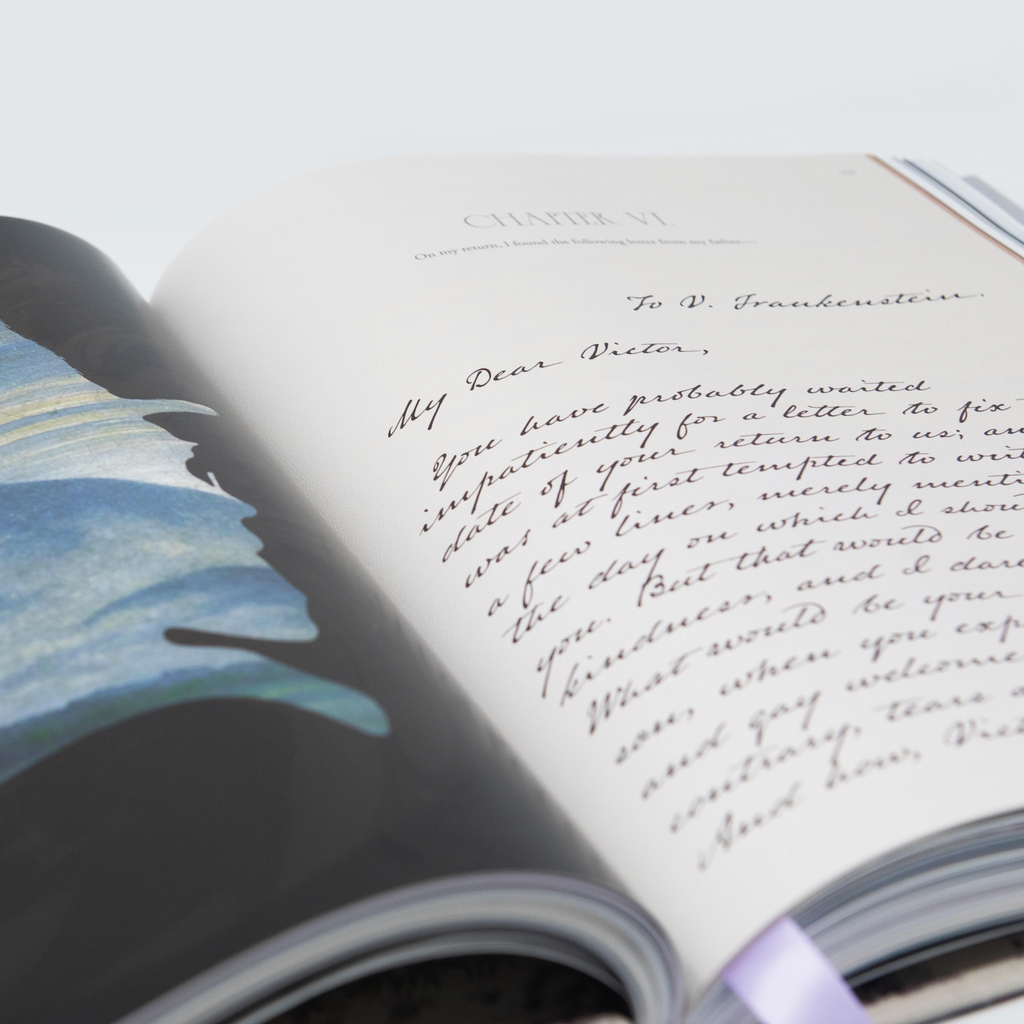 CHAPTER VI.
On my return, I found the following letter from my father:—
To V. Frankenstein.
My Dear Victor,
You have probably waited
impatiently for a letter to fix
date of your return to us; an
was at first tempted to writ
a few lines, merely menti
the day on which I shou
you. But that would be
kindness, and I dare
What would be your
son, when you exp
and gay welcome
contrary, tears a
And now, Vict